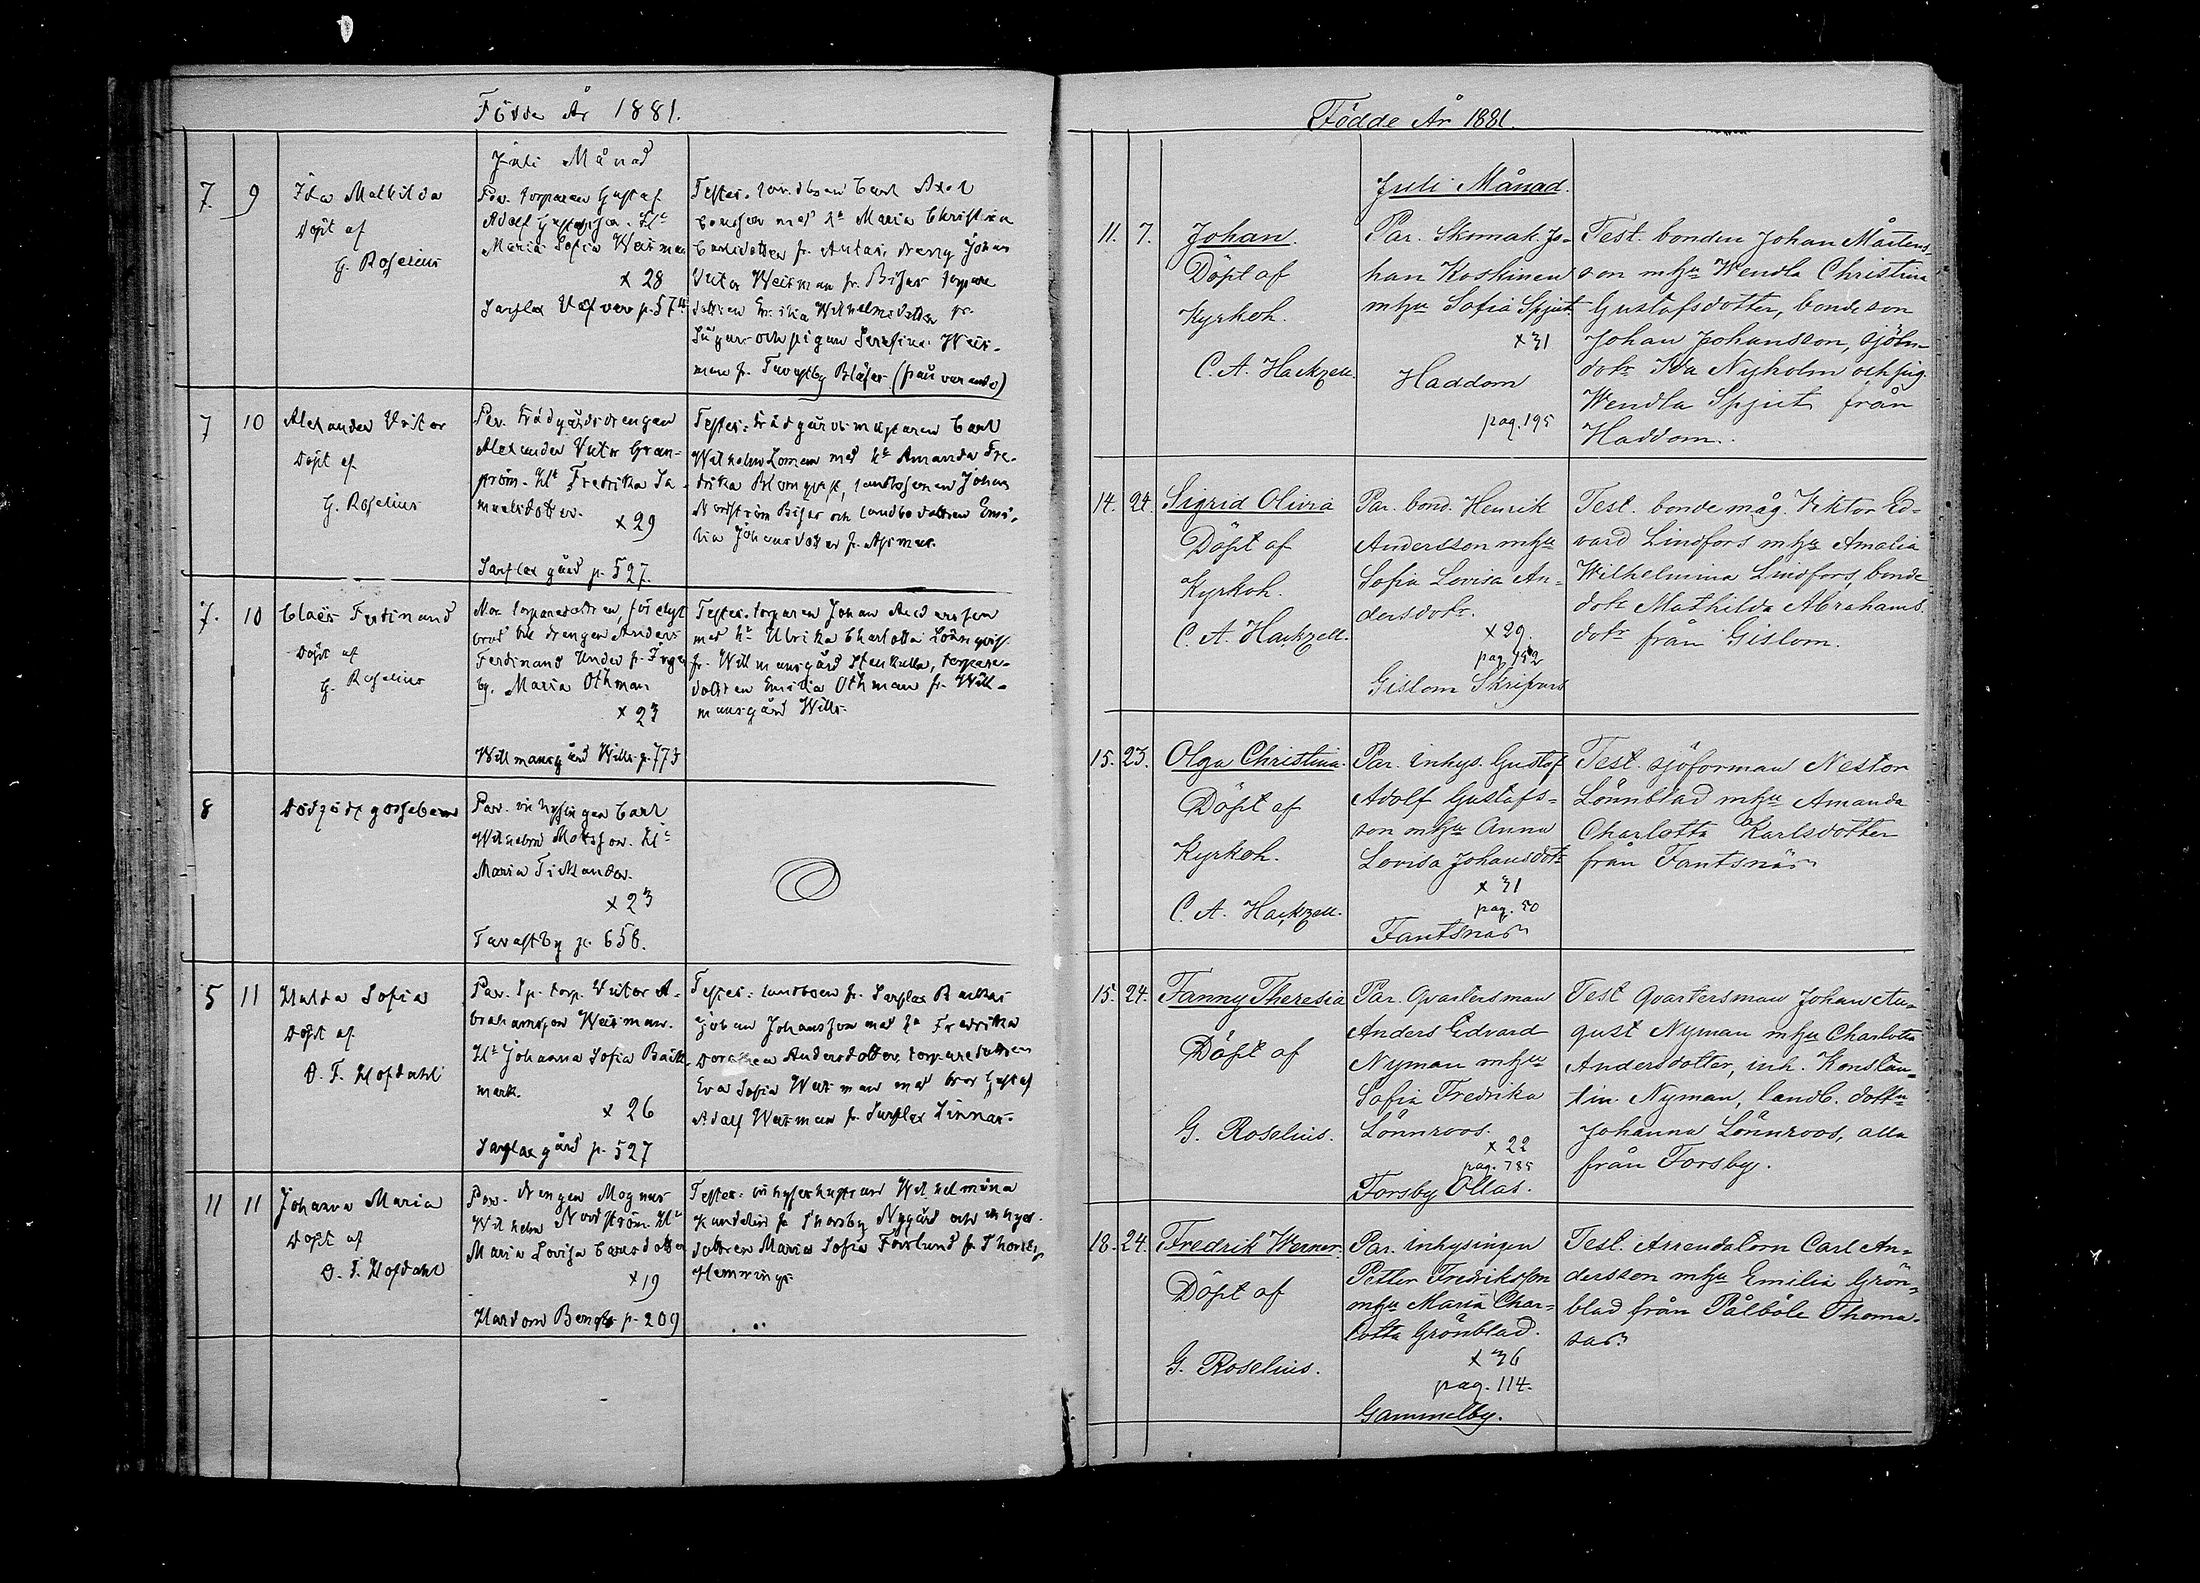 Födde År 1881.
Juli Månad
7. 9 Ida Mathilda
Döpt af
G. Roselius
Par. torparen Gustaf
Adolf Gustafsson. H:
Maria Sofia Weisman
x 28
Sarflax p. 574
Testes. landboen Carl Axel
med h:u Maria Christina
Carlsdotter fr. dreng Johan
Victor Weisman fr.
Wilhelmsdotter fr.
och pigan Serafina Weis-
man fr. Tavastby
7 10 Alexander Victor
Döpt af
G. Roselius
Par. trädgårdsdrengen
Alexander Victor Gran-
ström. H: Fredrika Sa-
muelsdotter.
x 29
Sarflax gård p. 527.
Testes: trädgårdsmästaren Carl
Wilhelm Loman med h:u Amanda Fre-
drika Blomqvist, landbosonen Johan
Nordström och landbodottren Emi-
lia Johansdotter fr.
7. 10 Claës Ferdinand
Döpt af
G. Roselius
Mor. torparedottren,
drengen Anders
Ferdinand fr.
by. Maria Othman
x 23
Willmansgård Wills. p. 773
Testes. torparen Johan Andersson
med h:u Ulrika Charlotta Lönnqvist
fr. Willmansgård torpare-
dottren Emilia Othman fr. Will-
mansgård Wills.
8 Dödfödt gossebarn
Par. inhysingen Carl
Wilhelm H:
Maria
x 23
Tavastby p. 658.
5 11 Hulda Sofia
Döpt af
O. F. Hofdahl
Par. sp. torp. Victor A-
brahamsson Weisman.
H: Johanna Sofia Bäck-
mark.
x 26
Sarflax gård p. 527
Testes: landboen fr. Sarflax Backas
Johan Johansson med h:u Fredrika
Dorothea Andersdotter, torparedottren
Eva Sofia Weisman med bror Gustaf
Adolf Weisman fr. Sarflax Linnas.
11 11 Johanna Maria
Döpt af
O. F. Hofdahl
Par. drengen Magnus
Wilhelm Nordström. H:
Maria Lovisa Carlsdotter
x 19
Hardom Bengts p. 209
Testes: inhyseshustrun Wilhelmina
fr. Thorsby Nygård och inhyses-
dottren Maria Sofia Forslund fr. Thorsby
Hemmings.
Födde År 1881.
Juli Månad.
11. 7. Johan.
Döpt af
Kyrkoh.
C. A. Hackzell.
Par. Skomak. Jo-
han Koskinen
m hu Sofia Spjut
x 31
Haddom
pag. 195
Test. bonden Johan Mårtens-
son m hu Wendla Christina
Gustafsdotter, bondeson
Johan Johansson, sjöm-
dotr Ida Nyholm och pig.
Wendla Spjut från
Haddom.
14. 24. Sigrid Olivia
Döpt af
Kyrkoh.
C. A. Hackzell.
Par. bond. Henrik
Andersson m hu
Sofia Lovisa An-
dersdotr.
x 29.
pag. 152
Gislom Skrifvars
Test. bondemåg. Viktor Ed-
vard Lindfors m hu Amalia
Wilhelmina Lindfors, bonde
dotr Mathilda Abrahams
dotr från Gislom.
15. 23. Olga Christina.
Döpt af
Kyrkoh.
C. A. Hackzell.
Par. inhys. Gustaf
Adolf Gustafs-
son m hu Anna
Lovisa Johansdotr
x 31
pag. 50
Fantsnäs
Test. sjöforman Nestor
Lönnblad m hu Amanda
Charlotta Karlsdotter
från Fantsnäs
15. 24. Fanny Theresia
Döpt af
G. Roselius.
Par. Qvartersman
Anders Edvard
Nyman m hu
Sofia Fredrika
Lönnroos.
x 22
pag. 785
Forsby Ollas.
Test Qvartersman Johan Au-
gust Nyman m hu Charlotta
Andersdotter, inh. Konstan-
tin Nyman, landb. dottn
Johanna Lönnroos, alla
från Forsby.
18. 24. Fredrik Werner.
Döpt af
G. Roselius.
Par. inhysingen
Petter Fredriksson
m hu Maria Char-
lotta Grönblad.
x 36
pag. 114.
Gammelby.
Test. Arrendatorn Carl An-
dersson m hu Emilia Grön-
blad från Pålböle Thoma-
sas.